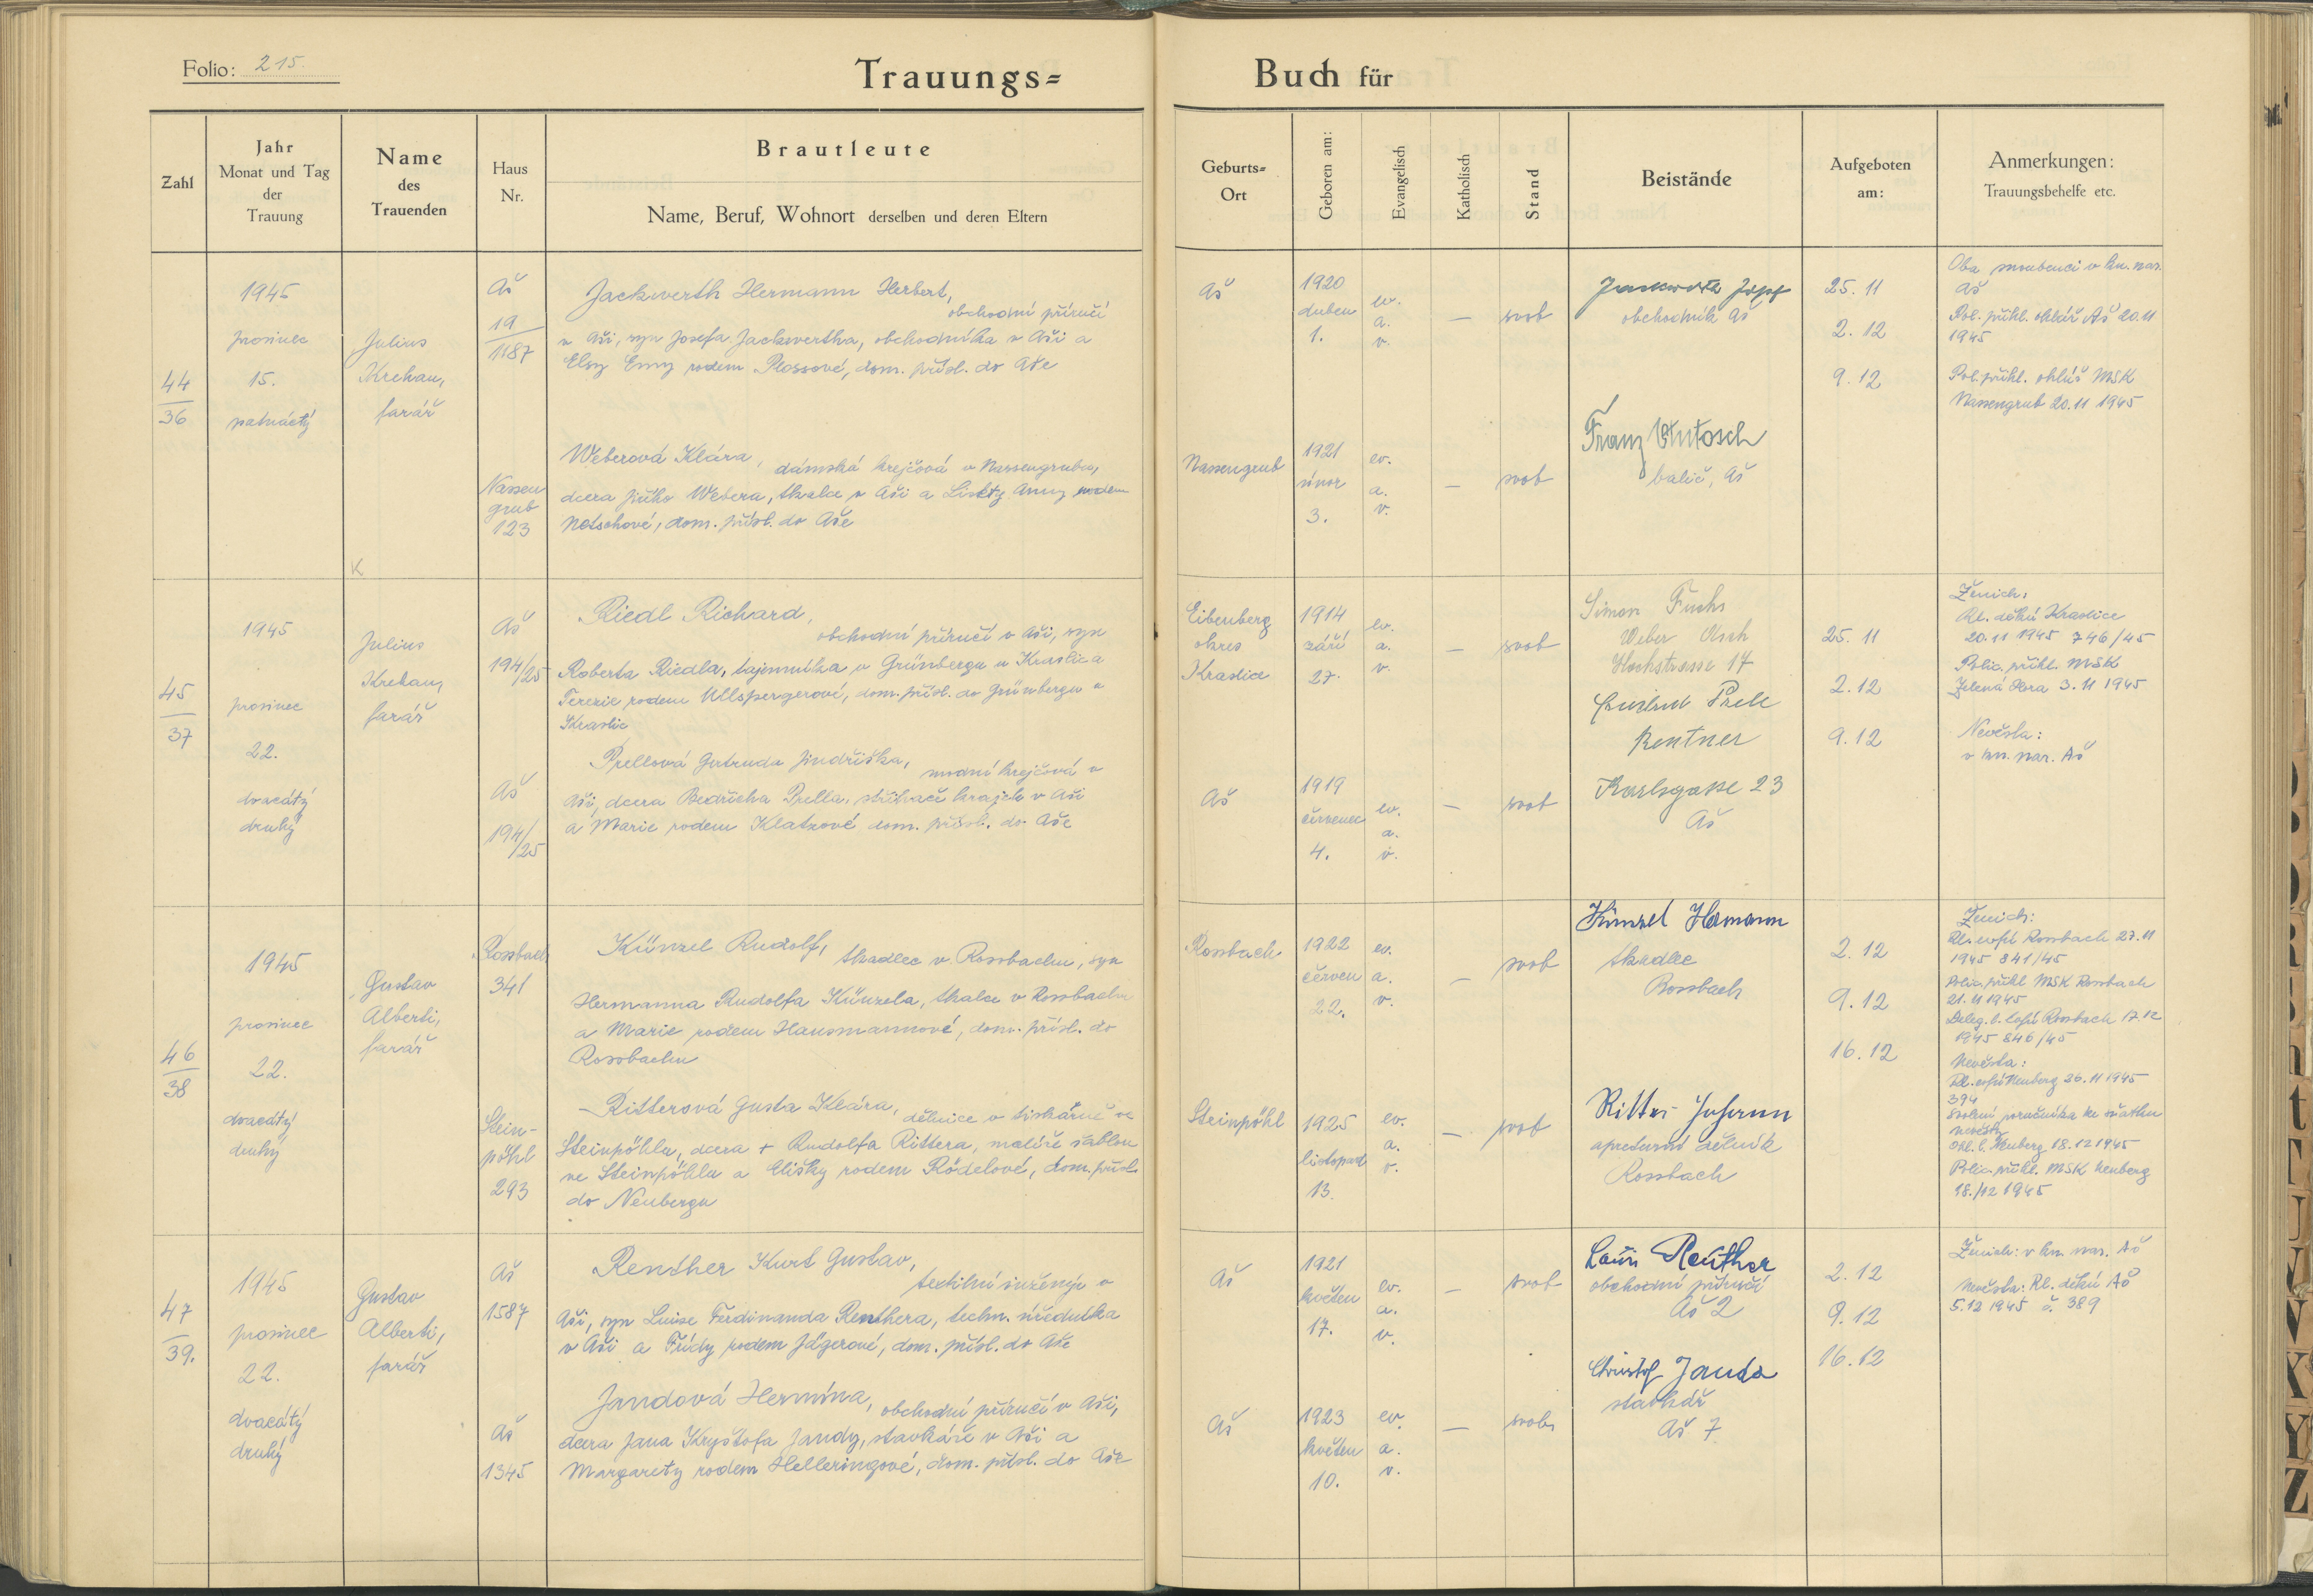 Folio: 215.
Trauungs=
Buch für
Zahl
Jahr
Monat und Tag
der
Trauung
Name
des
Trauenden
Haus
Nr.
Brautleute
Name, Beruf, Wohnort derselben und deren Eltern
Geburts=
Ort
Geboren am:
Evangelisch
Katholisch
Stand
Beistände
Aufgeboten
am:
Anmerkungen:
Trauungsbehelfe etc.
44
36
1945
prosinec
15.
patnáctý
Julius
Krehan,
farář
Aš
19
1187
Jackwerth Hermann Herbert,
obchodní příručí
v Aši, syn Josefa Jackwertha, obchodníka v Aši a
Elsy Emy rodem Plossové, dom. přísl. do Aše
Nassen
grub
123
Weberová Klára, dámská krejčová v Nassengrubu,
dcera Jiřího Webera, tkalce v Aši a Lisety Anny rodem
Notschové, dom. přísl. do Aše
Aš
1920
duben
1.
ev.
a.
v.
—
svob
obchodník Aš
25. 11
2. 12
9. 12
Oba snoubenci v kn. nar.
Aš
Pol. přihl. ohláš Aš 20.11
1945
Pol. přihl. ohláš MSK
Nassengrub 20.11 1945
Nassengrub
1921
únor
3.
ev.
a.
v.
—
svob
Franz
balič, Aš
K
45
37
1945
prosinec
22.
dvacátý
druhý
Julius
Krehan,
farář
Aš
194/25
Riedl Richard,
obchodní příručí v Aši, syn
Roberta Riedla, tajemníka v Grünbergu u Kraslic a
Terezie rodem Ullspergerové, dom. přísl. do Grünbergu u
Kraslic
Aš
194/25
Prellová Gertruda Jindřiška, modní krejčová v
Aši, dcera Bedřicha Prella, střihače krajek v Aši
a Marie rodem Klatzové dom. přísl. do Aše
Eibenberg
okres
Kraslice
1914
září
27.
ev.
a.
v.
—
svob
Simon Fuchs
Weber Asch
Hochstrasse 17
Prell
Rentner
Karlsgasse 23
Aš
25. 11
2. 12
9. 12
Ženich:
Ř.k. děkú Kraslice
20.11 1945 746/45
Polic. přihl. MSK
Zelená Hora 3.11 1945
Nevěsta:
v kn. nar. Aš
Aš
1919
červenec
4.
ev.
a.
v.
—
svob
46
38
1945
prosinec
22.
dvacátý
druhý
Gustav
Alberti,
farář
Rossbach
341
Künzel Rudolf, tkadlec v Rossbachu, syn
Hermanna Rudolfa Künzela, tkalce v Rossbachu
a Marie rodem Hausmannové, dom. přísl. do
Rossbachu
Stein-
pöhl
293
Ritterová Gusta Klára, dělnice v tiskárně ve
Steinpöhlu, dcera + Rudolfa Rittera, malíře šablon
ve Steinpöhlu a Elišky rodem Rödelové, dom. přísl.
do Neubergu
Rossbach
1922
červen
22.
ev.
a.
v.
—
svob
Künzel Hermann
tkadlec
Rossbach
2. 12
9. 12
16. 12
Ženich:
Rossbach 27.11
1945 841/45
Polic. přihl MSK Rossbach
21.11 1945
Deleg. l. Rossbach 17.12
1945 846/45
Nevěsta:
Neuberg 26.11 1945
394
Svolení poručníka ke sňatku
nevěsty
Ohl. l. Neuberg 18.12 1945
Polic. přihl. MSK Neuberg
18./12 1945
Steinpöhl
1925
listopad
13.
ev.
a.
v.
—
svob
Ritter Johann
apreturní dělník
Rossbach
47
39.
1945
prosinec
22.
dvacátý
druhý
Gustav
Alberti,
farář
Aš
1587
Renther Kurt Gustav,
textilní inženýr v
Aši, syn Luise Ferdinanda Renthera, techn. úředníka
v Aši a Frídy rodem Jägerové, dom. přísl. do Aše
Aš
1345
Jandová Hermína, obchodní příručí v Aši,
dcera Jana Kryštofa Jandy, stavkáře v Aši a
Margarety rodem Helleringové, dom. přísl. do Aše
Aš
1921
květen
17.
ev.
a.
v.
—
svob
Reuther
obchodní příručí
Aš 2
2. 12
9. 12
16. 12
Ženich: v kn. nar. Aš
Nevěsta: Ř.k. děkú Aš
5.12 1945 č. 389
Aš
1923
květen
10.
ev.
a.
v.
—
svob
Christof Janda
stavkář
Aš 7